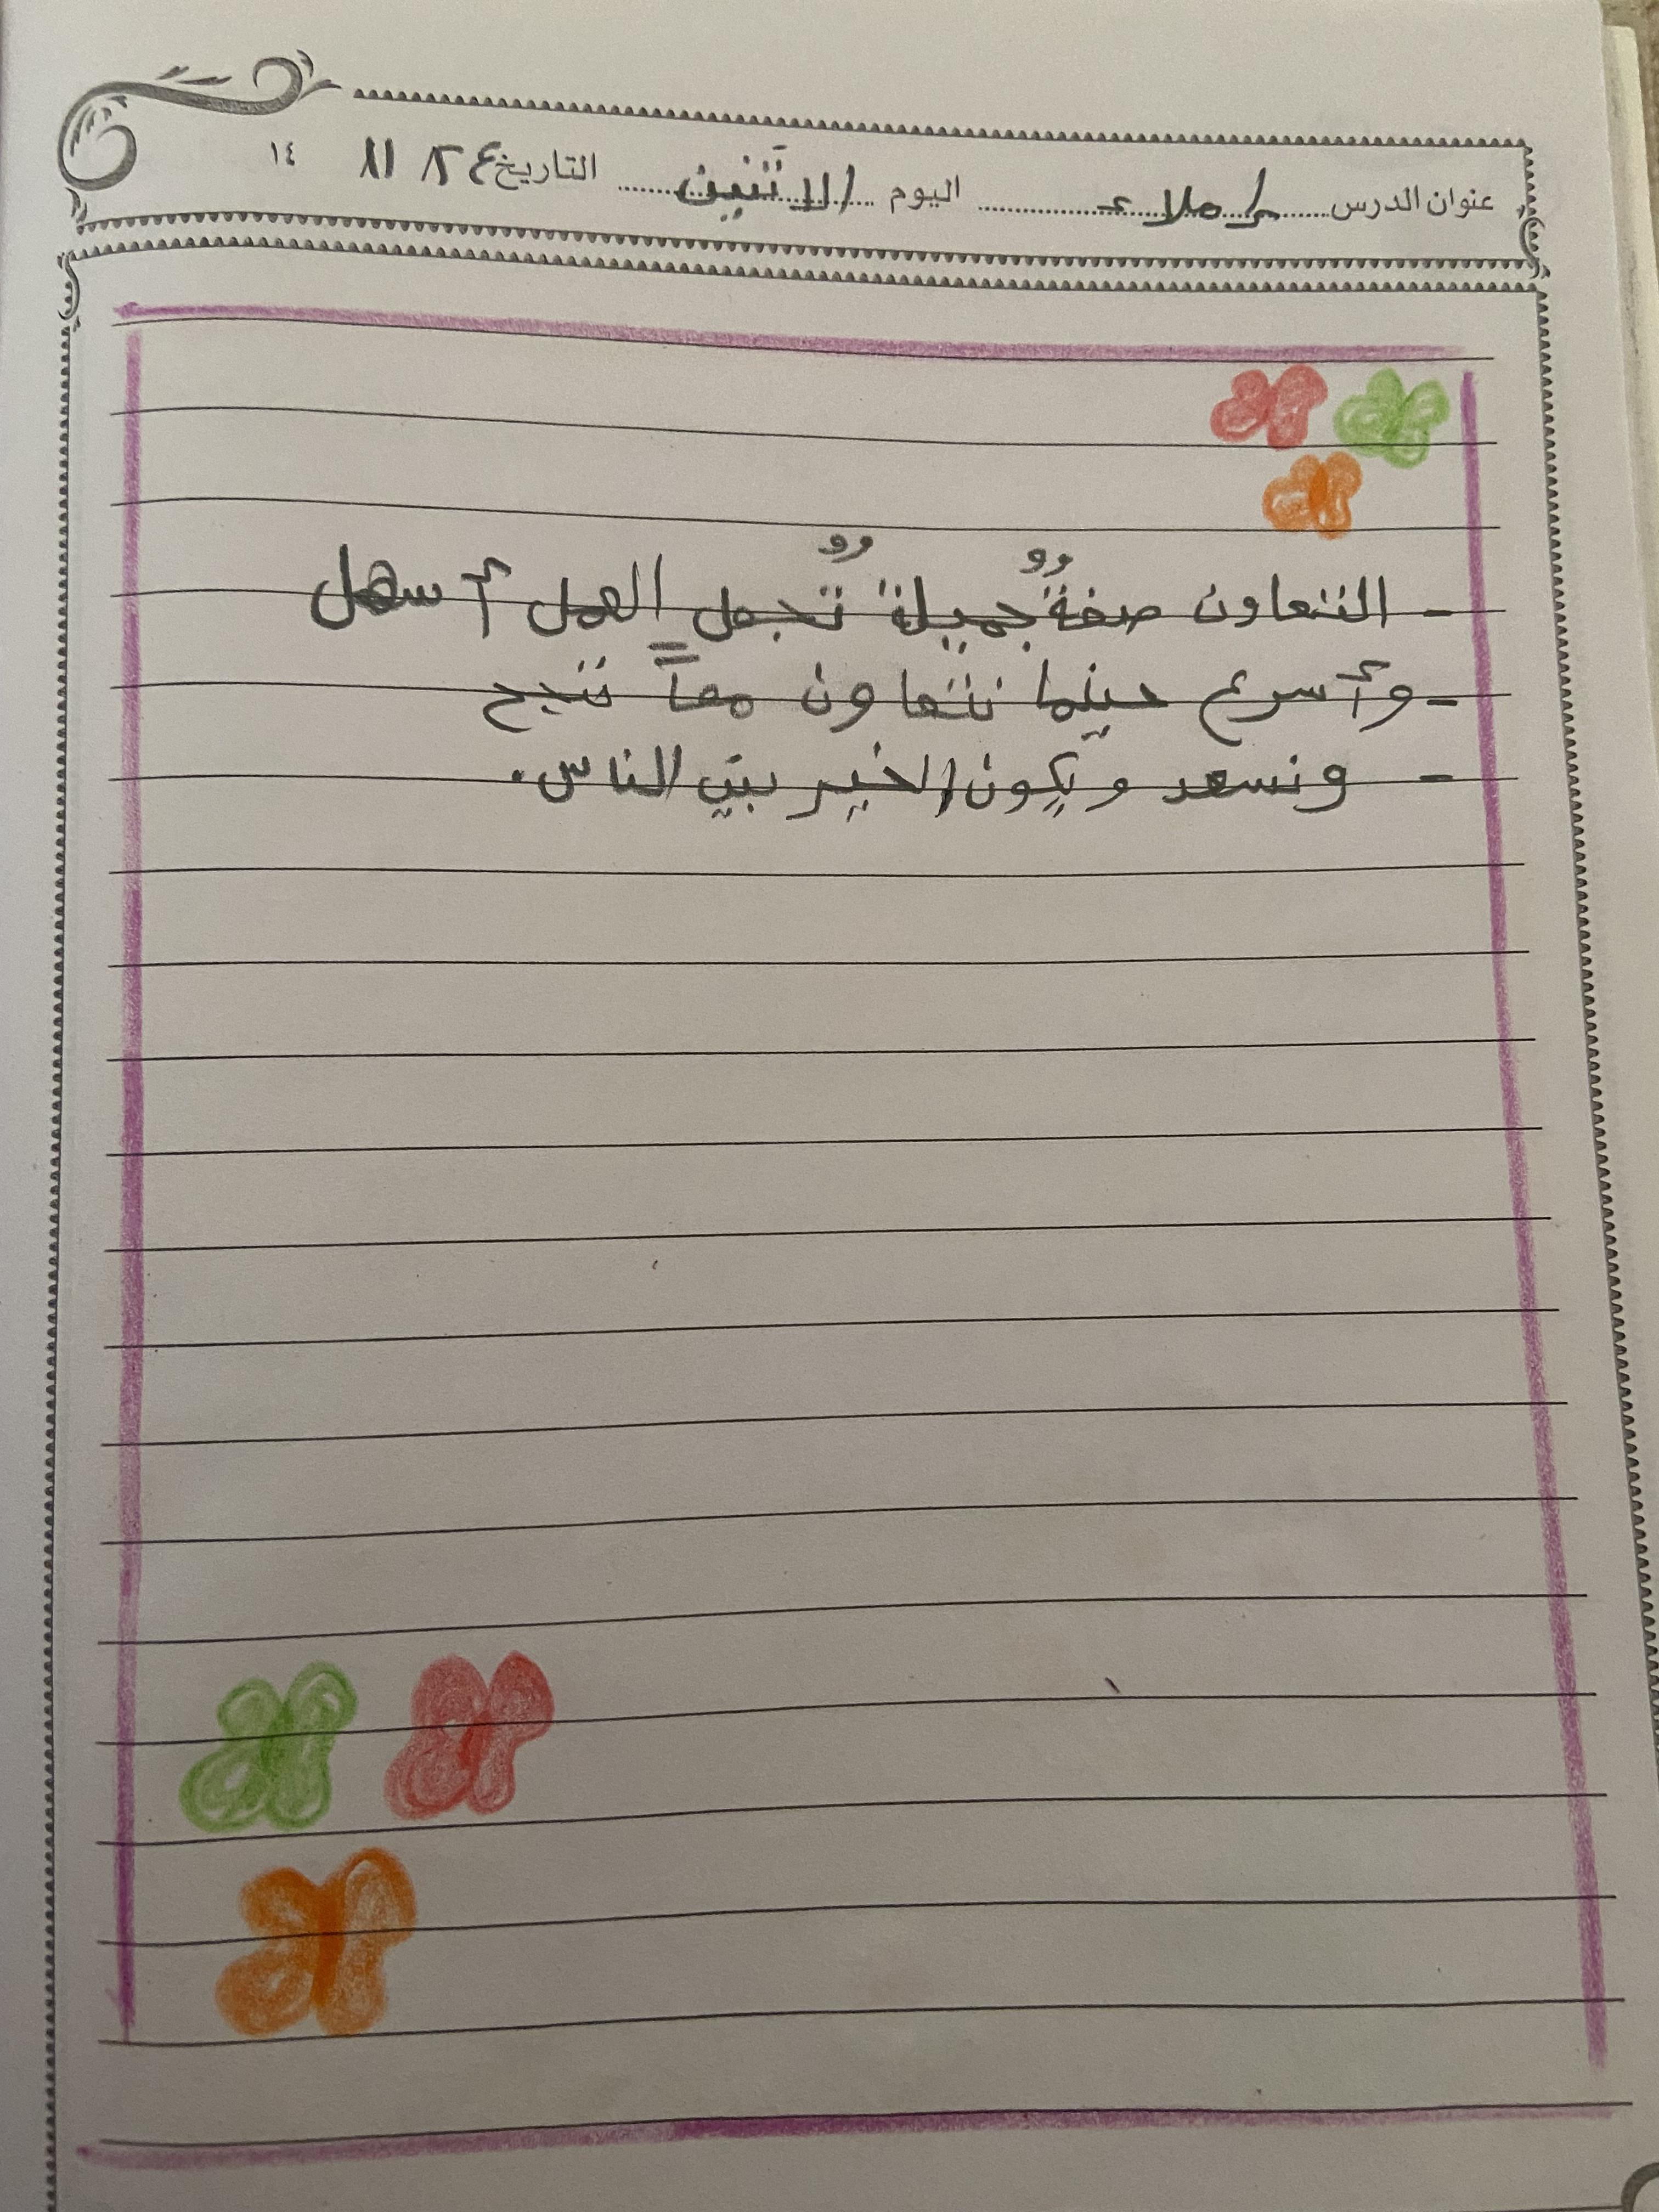 عنوان الدرس إملاء اليوم الاثنين التاريخ ٢٤ / ١١ / ١٤
- التعاون صفةٌ جميلةٌ تجعل العمل أسهل
- وأسرع حينما نتعاون معاً ننجح
- ونسعد ويكون الخير بين الناس.